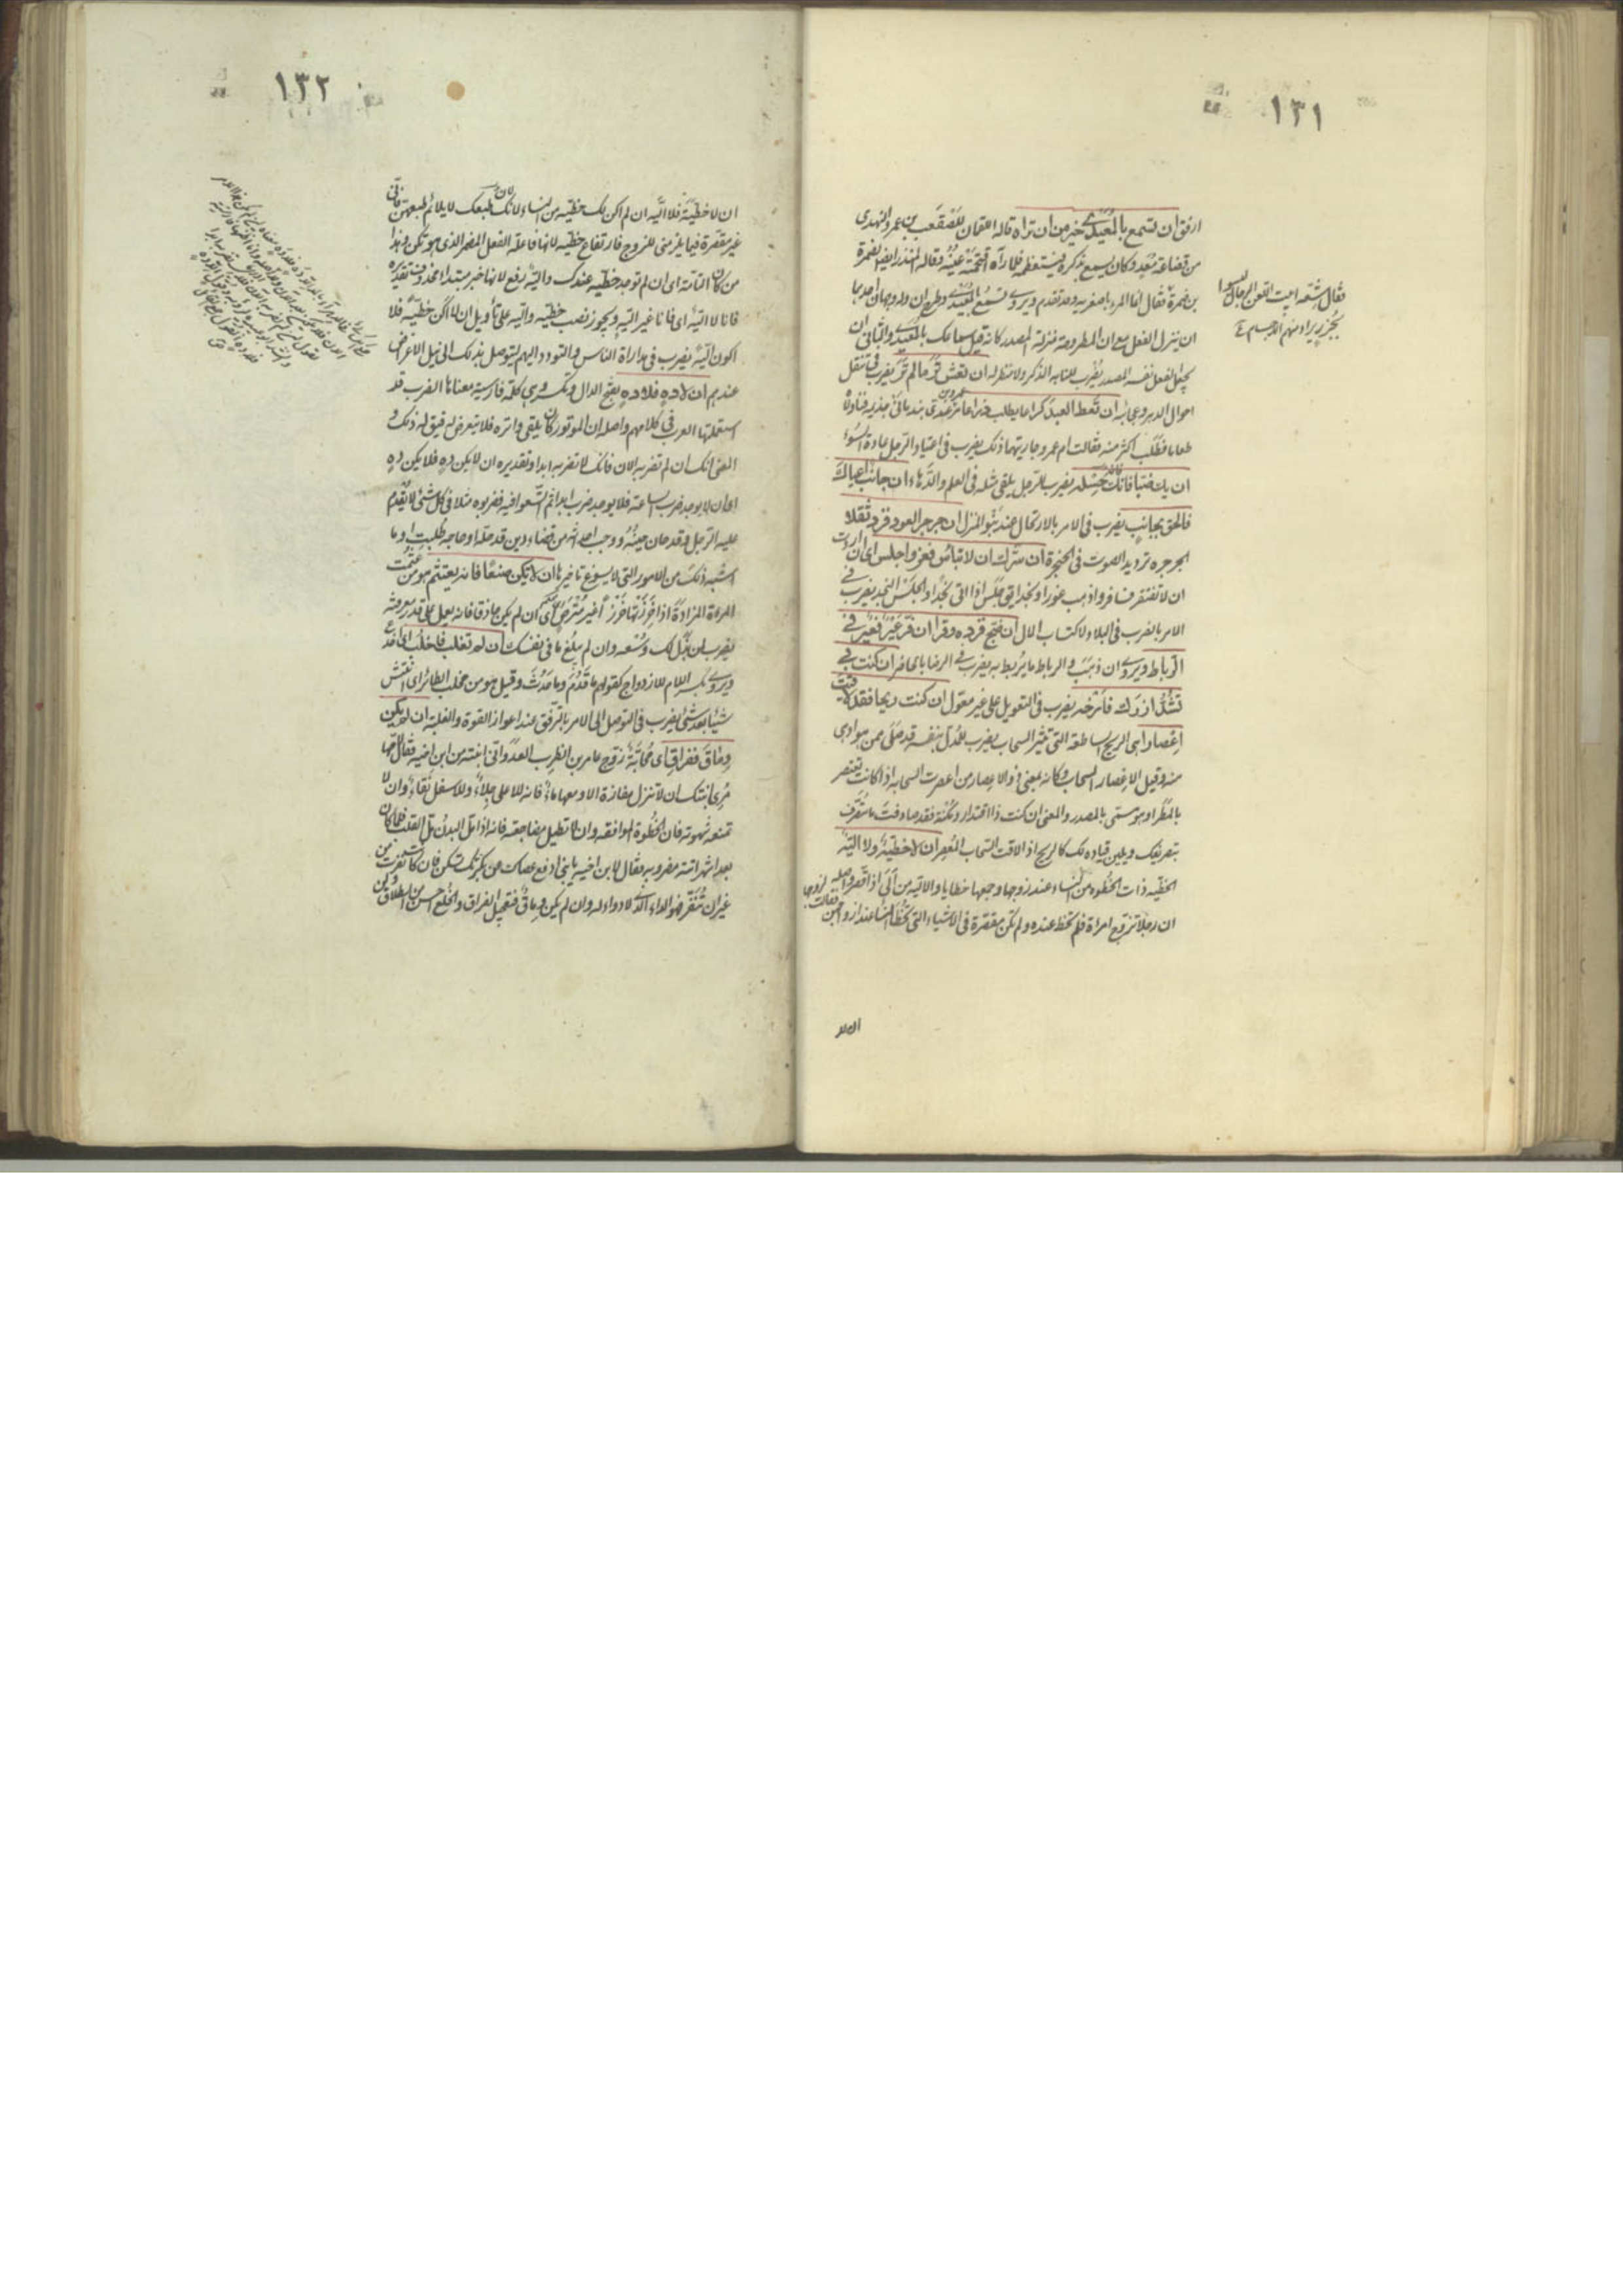 ١٣١
ارفق ان تسمع بالمعيدى خير من ان تراه قاله النعمان للصقعب بن عمرو النهدى
من قضاعة معد وكان يسمع بذكره فيستعظمه فلما رآه اقتحمته عينه وقاله المنذر ايضا لضمرة
بن ضمرة فقال انما المرء باصغريه وقد تقدم ويروى تسمع بالمعيدى وطرح ان وله وجهان احدهما
ان ينزل الفعل مع ان المطروحة منزلة المصدر كانه قيل سماعك بالمعيدى والثانى ان
يجعل الفعل نفسه المصدر يضرب للنابه الذكر ولا منظر له ان تعش تر ما لم تر يضرب فى تنقل
احوال الدهر وعجائبه ان تعط العبد كراعا يطلب ذراعا
طعاما فطلب اكثر منه فقالت ام عمرو جاريتهما ذلك يضرب فى اعتياد الرجل عادة السوء
ان يك ضبا فانى حسله يضرب للرجل يلقى مثله فى العلم والدهاء ان جانب اعياك
فالحق بجانب يضرب فى الامر بالارتحال عند نبو المنزل ان جرجر العود فزده ثقلا
الجرجره ترديد الصوت فى الحنجرة ان سرك ان لا تبأس فغر واجلس اى ان اردت
ان لا تفتقر فسافر واذهب غورا ونجدا يق جلس اذا اتى نجدا والجلس النجد يضرب فى
الامر بالضرب فى البلاد لاكتساب المال ان ضج فزده وقرا ان فر عير فعير فى
الرباط ويروى ان ذهب والرباط ما يربط به يضرب فى الرضا بالحاضر ان كنت بى
تشد ازرك فارخه يضرب فى التعويل على غير معول ان كنت ريحا فقد لاقيت
اعصارا هى الريح الساطعة التى تثير السحاب يضرب للمدل بنفسه قد صلى بمن هو ادهى
منه وقيل الاعصار السحاب وكانه بمعنى ذو الاعصار من اعصرت السحابه اذا كانت تعتصر
بالمطر او هو سمى بالمصدر والمعنى ان كنت ذا اقتدار ومكنة فقد صادفت ما تتصرف
بتصريفك ويلين قياده لك كالريح اذا لاقت السحاب المعصر ان لا حظية ولا الية
الحظيه ذات الحظوه من النساء عند زوجها وجمعها حظايا والاليه من ألى اذا قصر واصله
ان رجلا تزوج امرأة فلم تحظ عنده ولم تكن مقصرة فى الاشياء التى تحظى النساء عند ازواجهن فقالت لزوجها
فقال شقه ابيت اللعن ان الرجال ليسوا
بجزر يراد منهم الاجسام
١٣٢
ان لا حظية فلا الية ان لم اكن لك حظية من النساء لان طبعك لا يلائم طبعهن فانى
غير مقصرة فيما يلزمنى للزوج فارتفاع حظية لانها فاعلة الفعل المضمر الذى هو تكن وهذا
من كان التامة اى ان لم توجد حظية عندك والية رفع لانها خبر مبتداء محذوف تقديره
فانا لا الية اى فانا غير الية ويجوز نصب حظية والية على تأويل ان لا اكن حظية فلا
اكون الية يضرب فى مداراة الناس والتودد اليهم ليتوصل بذلك الى نيل الاغراض
عندهم ان لا ده فلا ده بفتح الدال وتكسر وهى كلمة فارسية معناها الضرب قد
استعملتها العرب فى كلامهم واصله ان الموتور كان يلقى واتره فلا يتعرض له فيق له ذلك و
المعنى انك ان لم تضربه الان فانك لا تضربه ابدا وتقديره ان لا يكن ده فلا يكن ده
اى ان لا يوجد ضرب الساعة فلا يوجد ضرب ابدا ثم اتسعوا فيه فضربوه مثلا فى كل شئ لا يقدم
عليه الرجل وقد حان حينه ووجب احداثه من قضاء دين قد حل او حاجة طلبت او ما
اشبه ذلك من الامور التى لا يسوغ تاخيرها ان لا يكن صنعا فانه يعتثم هو من عثمت
المراة المزادة اذا خرزتها خرزا غير محكم اى ان لم يكن حاذقا فانه يعمل على قدر معرفته
يضرب لمن بذل لك وسعه وان لم يبلغ ما فى نفسك ان لم تغلب فاخلب اى اخدع
ويروى بكسر اللام للازدواج كقولهم ما قدم وما حدث وقيل هو من مخلب الطائر اى انتش
شيئا بعد شئ يضرب فى التوصل الى الامر بالترفق عند اعواز القوة والغلبة ان لم يكن
وفاق ففراق اى محابة زوج عامر بن الظرب العدوانى ابنته من ابن اخيه فقال لامها
مرى ابنتك ان لا تنزل مفازة الا ومعها ماء فانه للاعلى جلاء وللاسفل نقاء وان لا
تمنعه شهوته فان الحظوة الموافقه وان لا تطيل مضاجعته فانه اذا مل البدن مل القلب فلما كان
بعد اشهر اتته مضروبه فقال لابن اخيه يا بنى ادفع عصاك عن بكرتك تسكن فان كانت نفرت من
غير ان تنفر فهو الداء الذى لا دواء له وان لم يكن وفاق فتعجيل الفراق والخلع احسن من الطلاق ولن